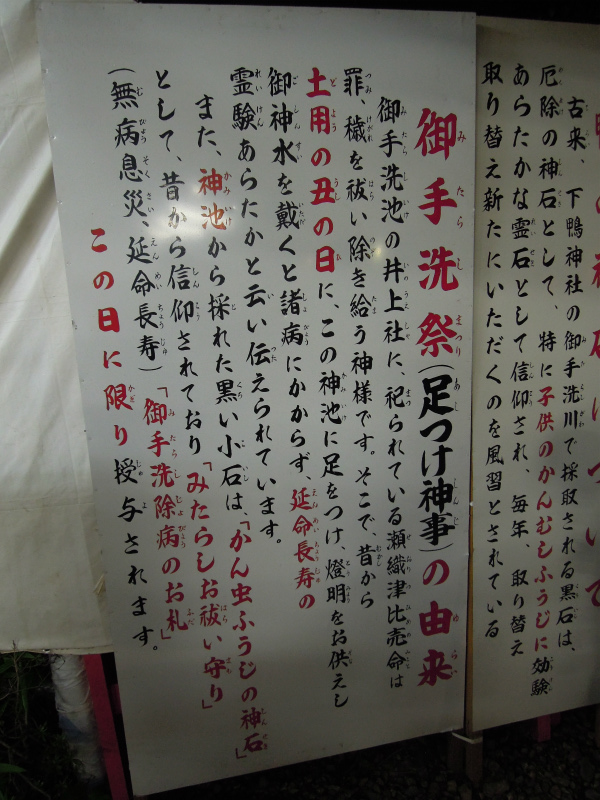 古来、下鴨神社の御手洗川で採取される黒石は、
厄除の神石として、特に子供のかんむしふうじに効験
あらたかな霊石として信仰され、毎年、取り替え
取り替え新たにいただくのを風習とされている
御手洗祭(足つけ神事)の由来
御手洗池の井上社に、祀られている瀬織津比売命は
罪、穢を祓い除き給う神様です。そこで、昔から
土用の丑の日に、この神池に足をつけ、燈明をお供えし
御神水を戴くと諸病にかからず、延命長寿の
霊験あらたかと云い伝えられています。
また、神池から採れた黒い小石は、「かん虫ふうじの神石」
として、昔から信仰されており「みたらしお祓い守り」
(無病息災、延命長寿)「御手洗除病のお札」
この日に限り授与されます。